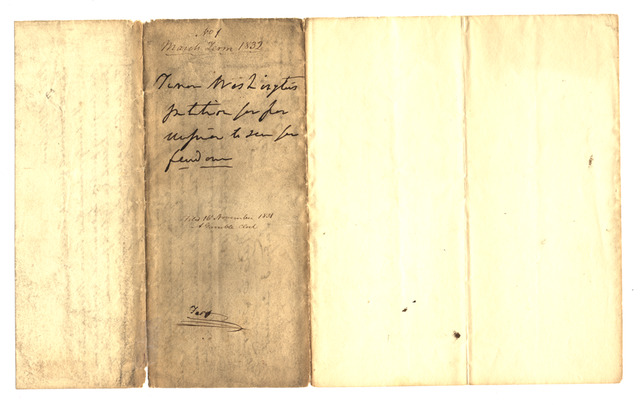 No 9
March Term 1832
Tenor Washington's
petition for per
mission to sue for
freedom
Filed 16 November 1831
A Gamble Clerk